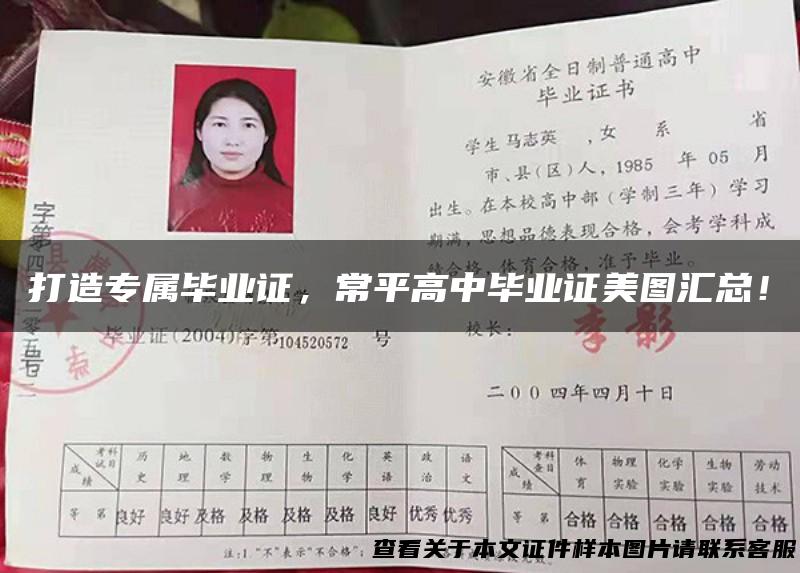 安徽省全日制普通高中
毕业证书
学生 马志英 ,女 系 省
市、县(区)人, 1985 年 05 月
出生。在本校高中部(学制三年)学习
期满,思想品德表现合格,会考学科成
绩合格,体育合格,准予毕业。
打造专属毕业证，常平高中毕业证美图汇总！
字第
号
毕业证(2004)字第104520572 号
校长: 李影
二00四年四月十日
考试科目 历史 地理 数学 物理 生物 化学 英语 政治 语文
成绩
等第 良好 良好 及格 及格 及格 及格 良好 优秀 优秀
考查科目 体育 物理实验 化学实验 生物实验 劳动技术
成绩
等第 合格 合格 合格 合格 合格
注:1."不"表示"不合格";
查看关于本文证件样本图片请联系客服